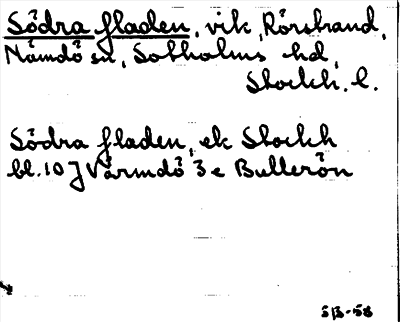 Södra fladen, vik, Rörstrand,
Nämdö sn, Sotholms hd,
Stockh. l.
Södra fladen, ek Stockh
bl. 10 J Värmdö 3 e Bullerön
SB-58